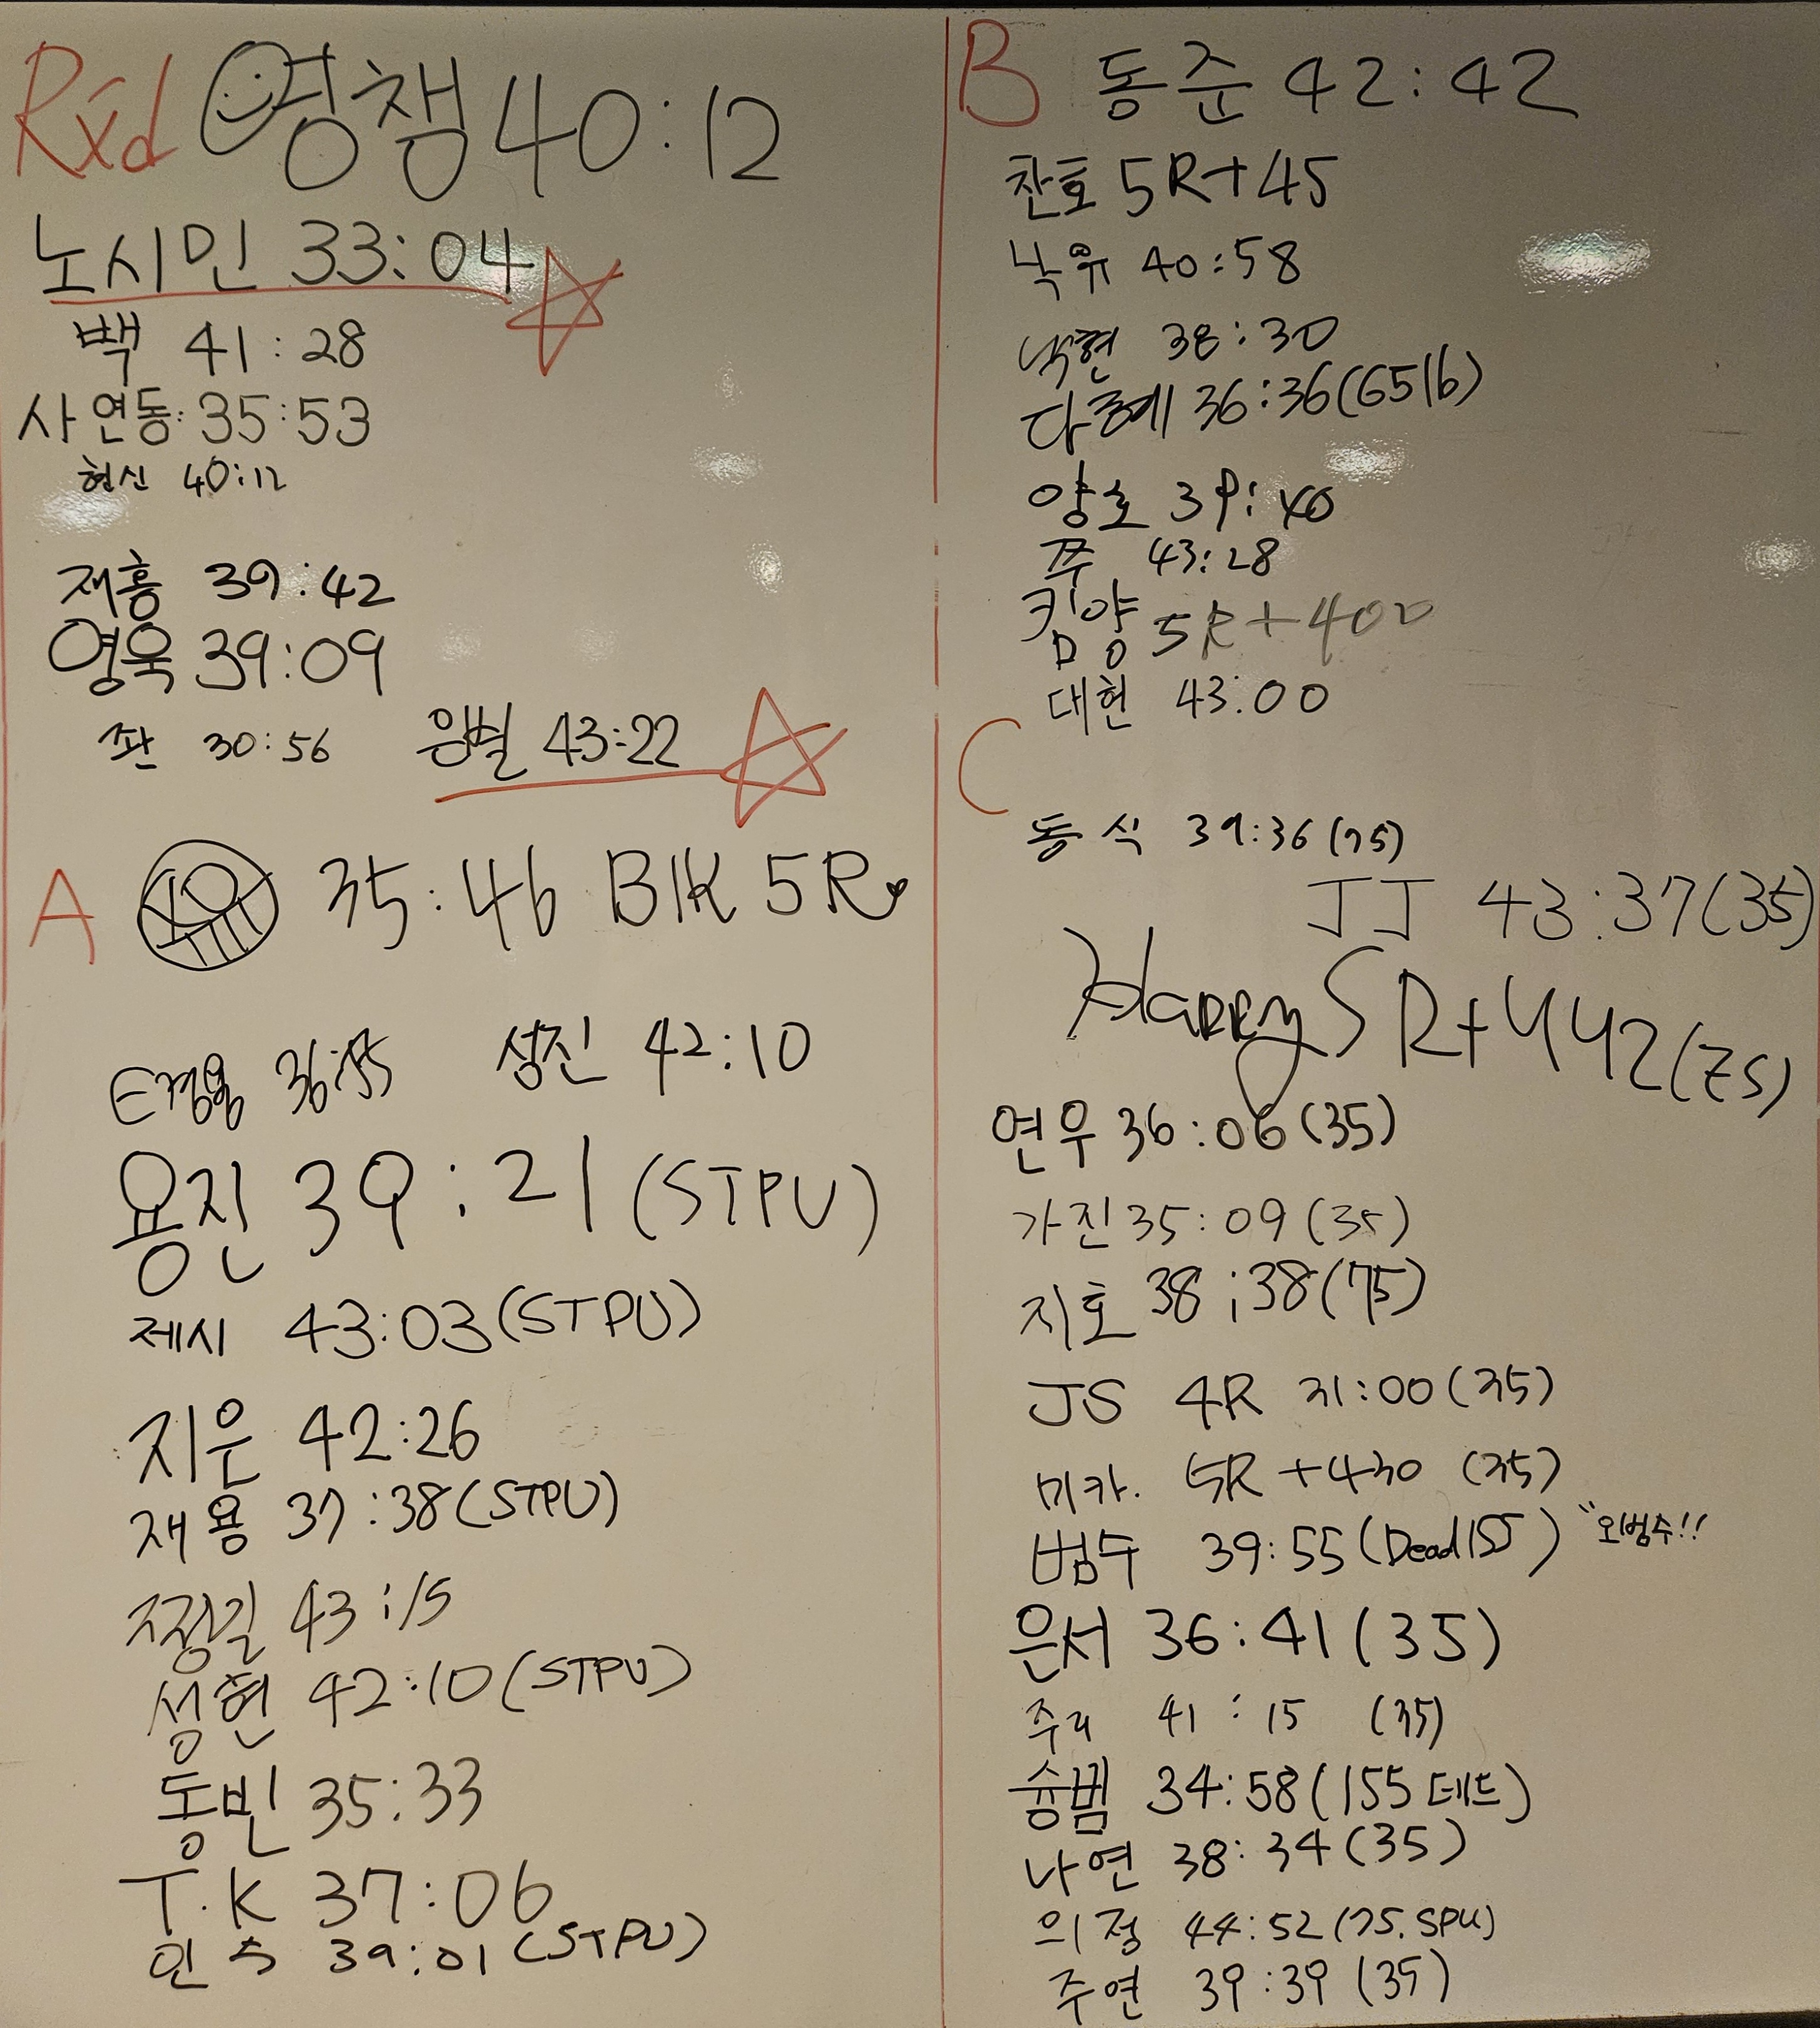 Rxd 영챔 40:12
노시민 33:04
백 41:28
사연동: 35:53
현신 40:12
재흥 39:42
영욱 39:09
좌 30:56 은별 43:22
A 35:46 BIK 5R
36:55 성진 42:10
용진 39:21 (STPU)
제시 43:03 (STPU)
지은 42:26
재용 37:38 (STPU)
정길 43:15
성현 42:10 (STPU)
동빈 35:33
T.K 37:06
인수 39:01 (STPU)
B 동준 42:42
찬호 5R+45
낙유 40:58
낙현 38:30
다혜 36:36 (65lb)
양호 39:40
쭈 43:28
킴양 5R+400
대현 43:00
C
동식 39:36 (75)
JJ 43:37 (35)
Harry 5R+442 (75)
연우 36:06 (35)
가진 35:09 (35)
지호 38:38 (75)
JS 4R 31:00 (35)
미카. 5R +430 (35)
범수 39:55 (Dead 155) "오범수!!
은서 36:41 (35)
주리 41:15 (35)
슝범 34:58 (155 데드)
나연 38:34 (35)
의정 44:52 (75. SPU)
주연 39:39 (35)